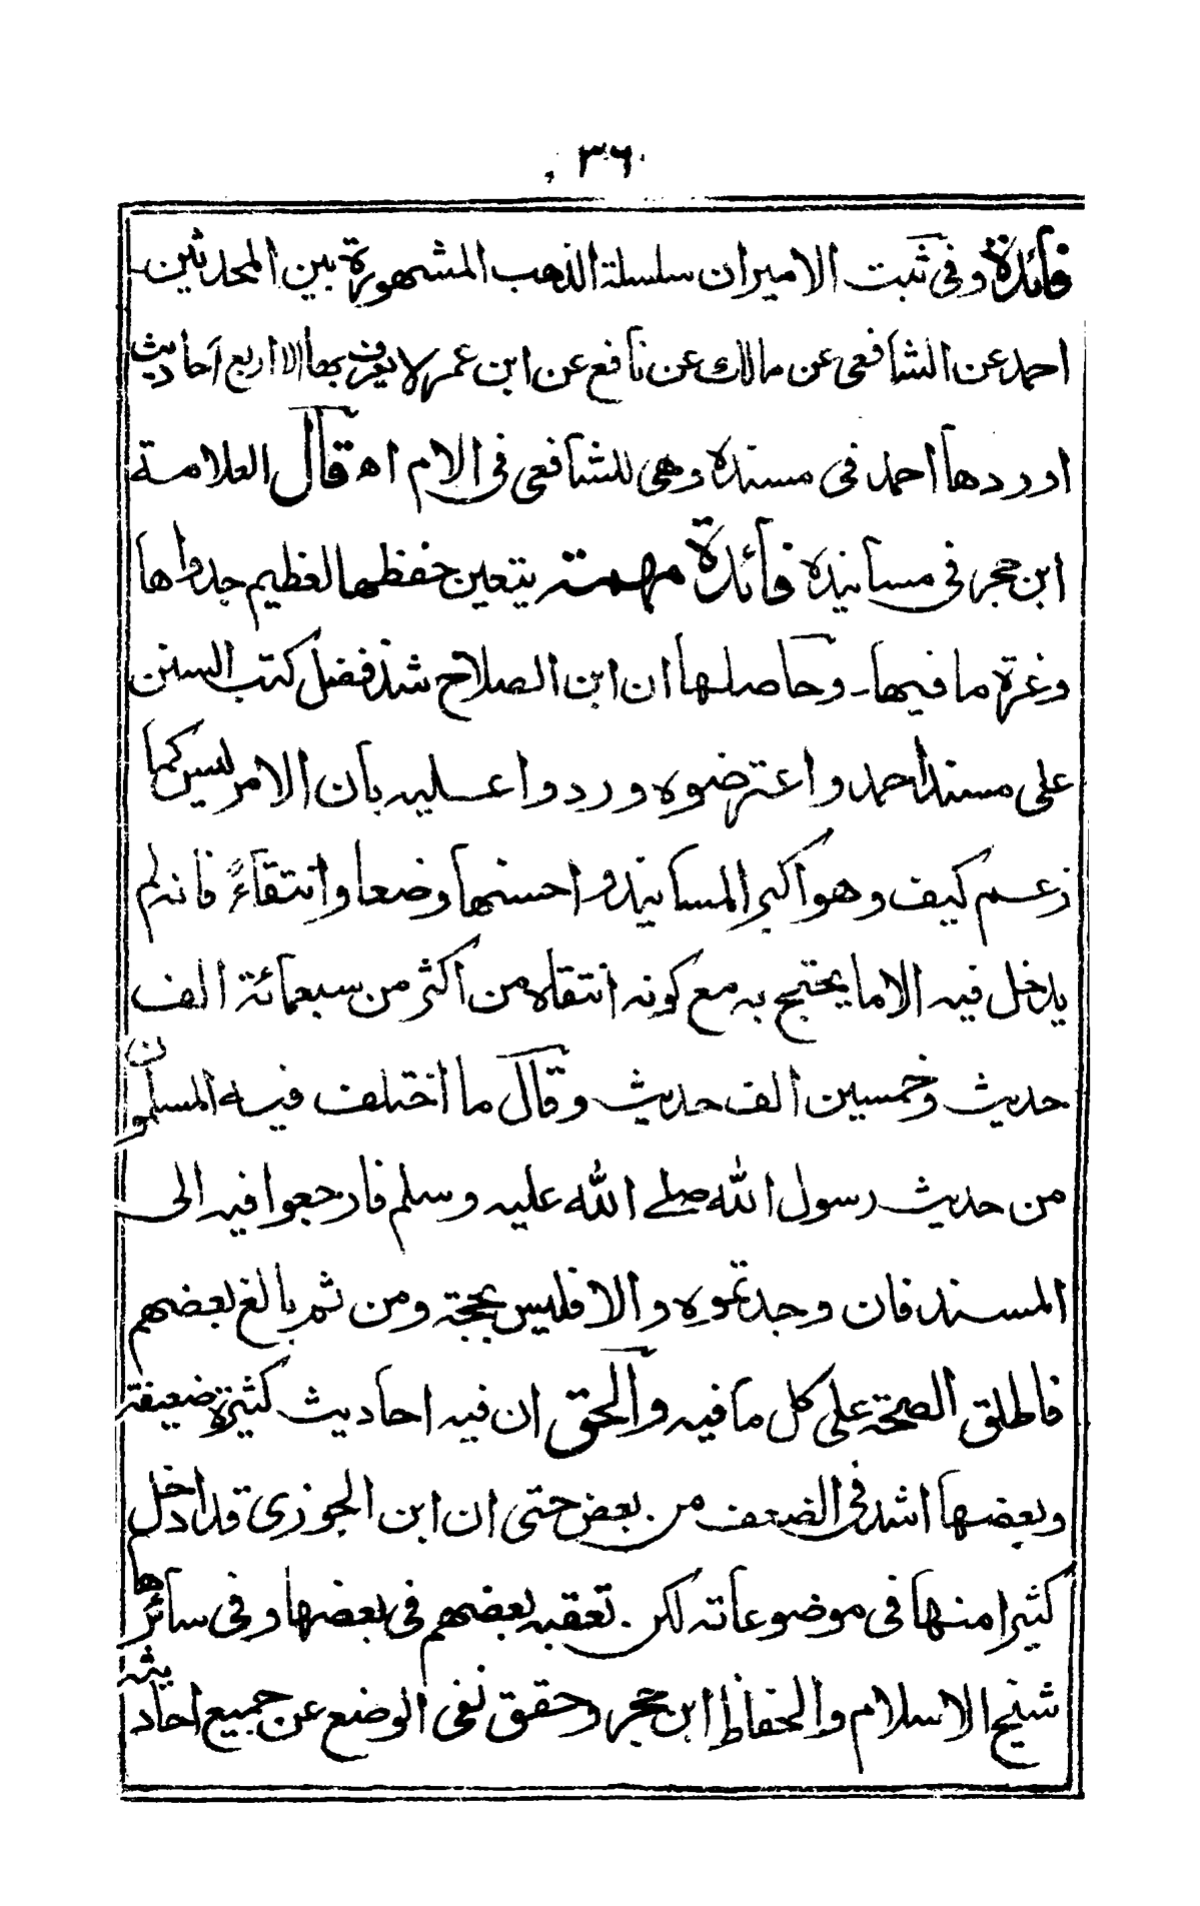 ٣٦
فائدة وفى ثبت الامير ان سلسلة الذهب المشهورة بين المحدثين
احمد عن الشافعى عن مالك عن نافع عن ابن عمر لا يعرف بها الا اربع احاديث
اوردها احمد فى مسنده وهى للشافعى فى الام اه قال العلامة
ابن حجر فى مسانيده فائدة مهمة يتعين حفظها لعظيم جدواها
وغرة ما فيها وحاصلها ان ابن الصلاح شذ ففضل كتب السنن
على مسند احمد واعترضوه وردوا عليه بان الامر ليس كما
زعم كيف وهو اكبر المسانيد واحسنها وضعا وانتقاءً فانه لم
يدخل فيه الا ما يحتج به مع كونه انتقاه من اكثر من سبعمائة الف
حديث وخمسين الف حديث وقال ما اختلف فيه المسلمون
من حديث رسول الله صلى الله عليه وسلم فارجعوا فيه الى
المسند فان وجدتموه والا فليس بحجة ومن ثم بالغ بعضهم
فاطلق الصحة على كل ما فيه والحق ان فيه احاديث كثيرة ضعيفة
وبعضها اشد فى الضعف من بعض حتى ان ابن الجوزى قد ادخل
كثيرا منها فى موضوعاته لكن تعقبه بعضهم فى بعضها وفى سائرها
شيخ الاسلام والحفاظ ابن حجر وحقق نفى الوضع عن جميع احاديثه